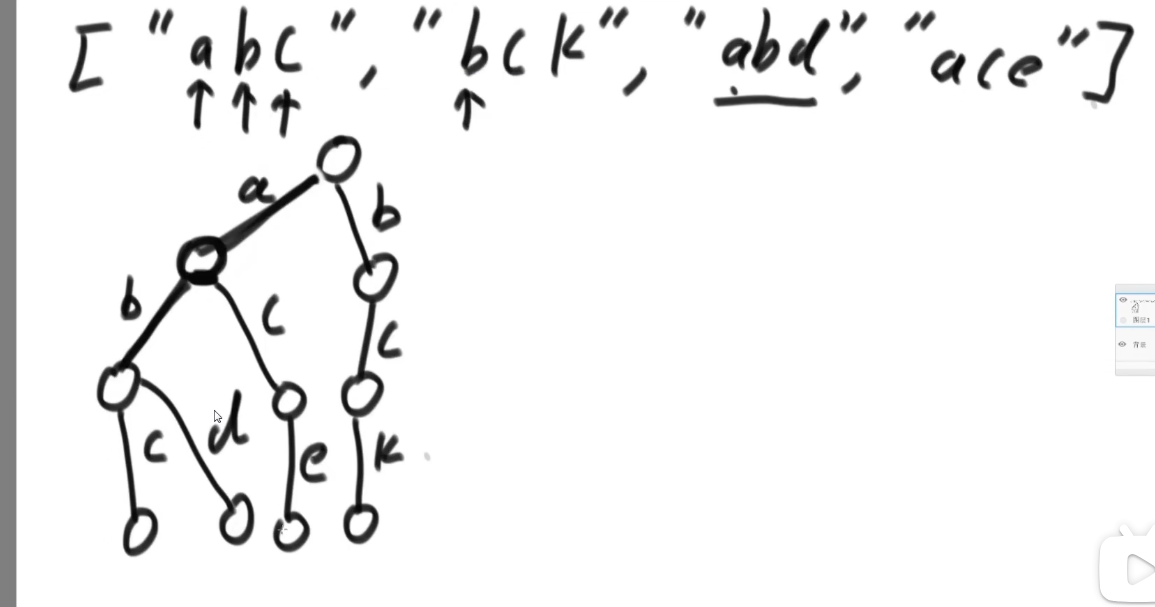 ["abc", "bck", "abd", "ace"]
a
b
b
c
c
c
d
e
k
图层1
背景